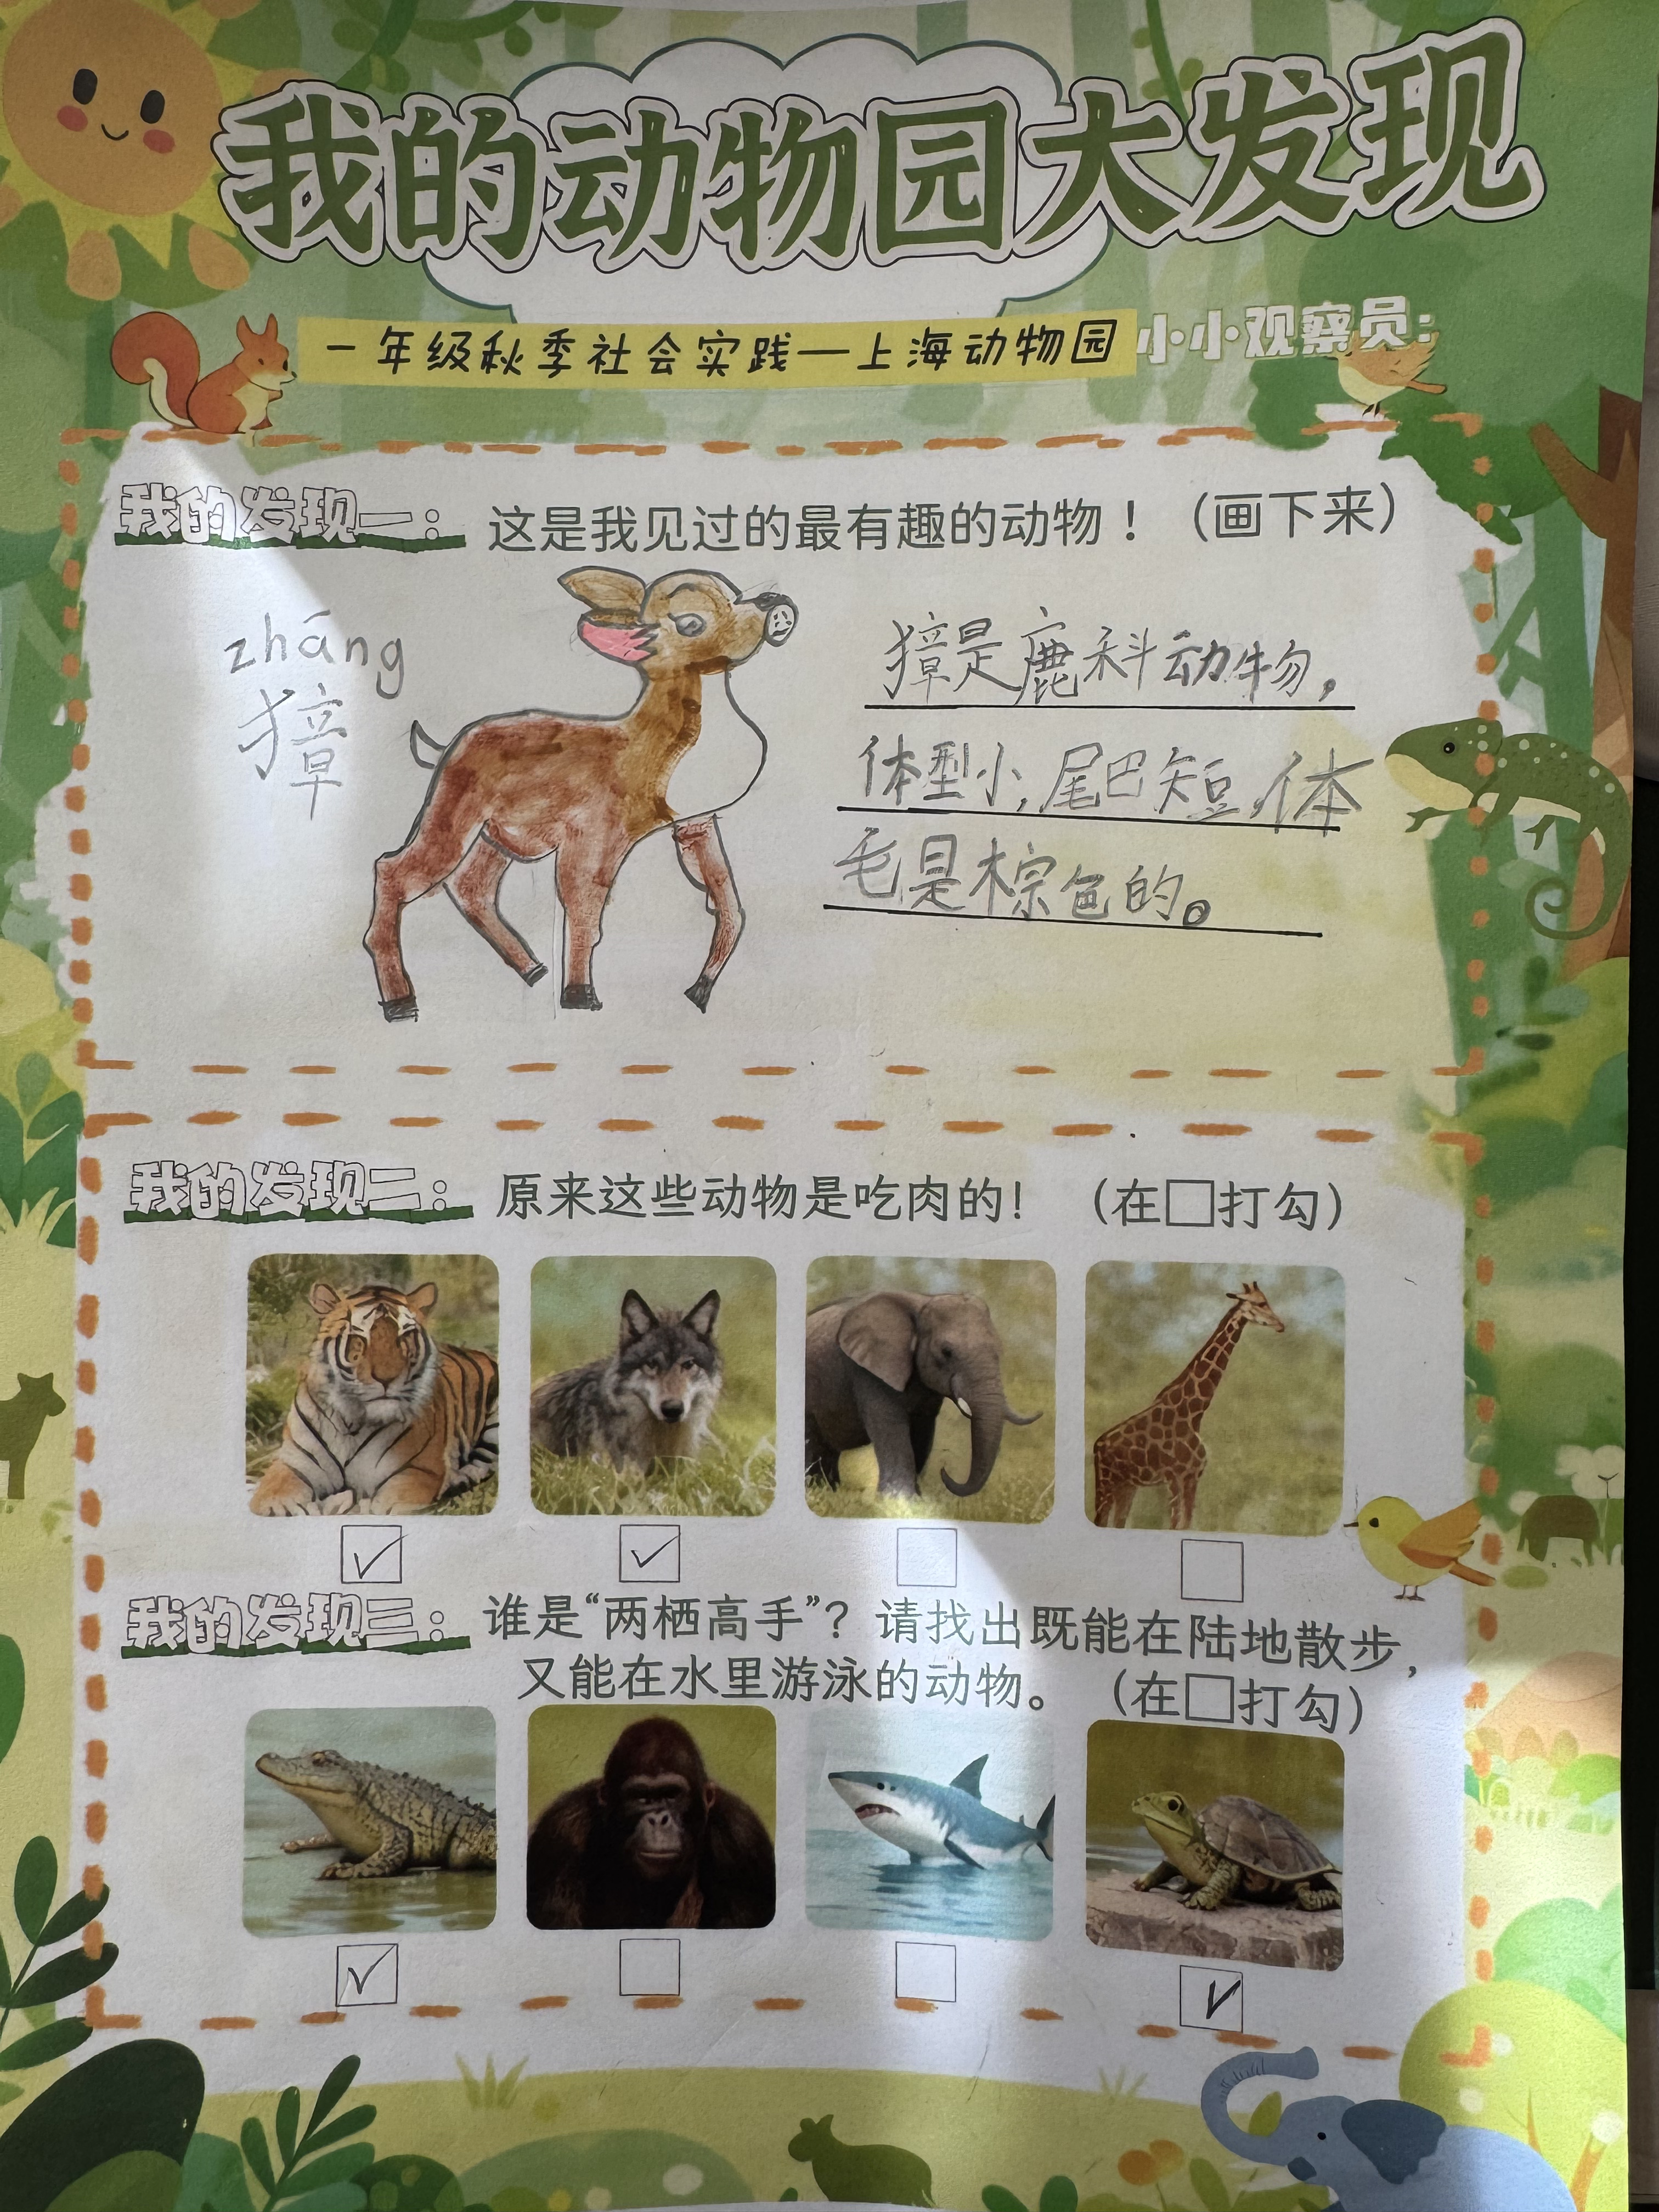 我的动物园大发现
一年级秋季社会实践—上海动物园 小小观察员:
我的发现一: 这是我见过的最有趣的动物！（画下来）
zhāng
獐
獐是鹿科动物,
体型小,尾巴短,体
毛是棕色的。
我的发现二: 原来这些动物是吃肉的！（在□打勾）
我的发现三: 谁是“两栖高手”？请找出既能在陆地散步，
又能在水里游泳的动物。（在□打勾）